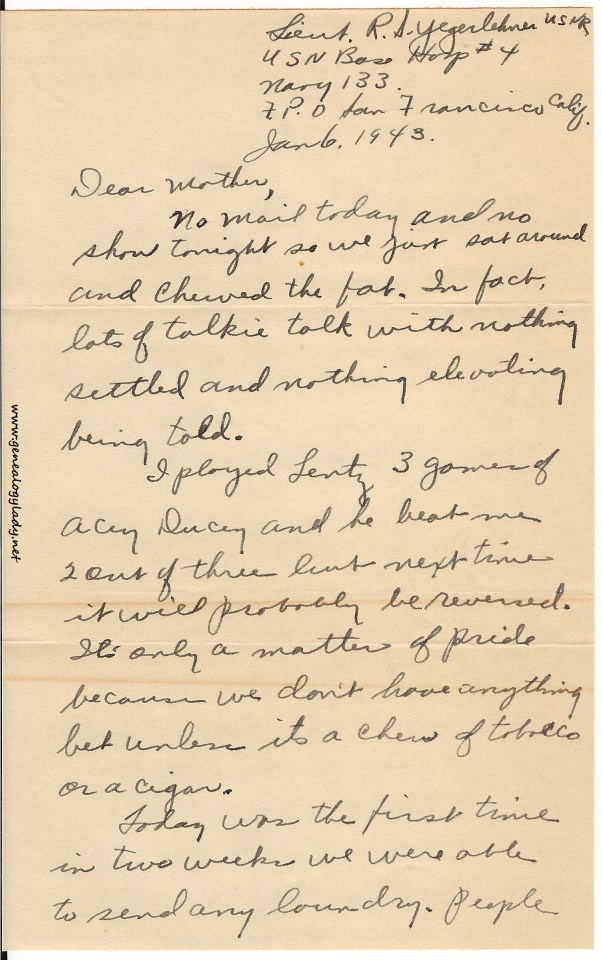 Lieut. R. S. Yegerlehner USNR
USN Base Hosp #4
Navy 133.
F.P.O San Francisco Calif.
Jan 6. 1943.
Dear Mother,
No mail today and no
show tonight so we just sat around
and chewed the fat. In fact,
lots of talkie talk with nothing
settled and nothing elevating
being told.
I played Lentz 3 games of
Acey Ducey and he beat me
2 out of three but next time
it will probably be reversed.
Its only a matter of pride
because we don't have anything
bet unless its a chew of tobacco
or a cigar.
Today was the first time
in two weeks we were able
to send any laundry. People
www.genealogylady.net